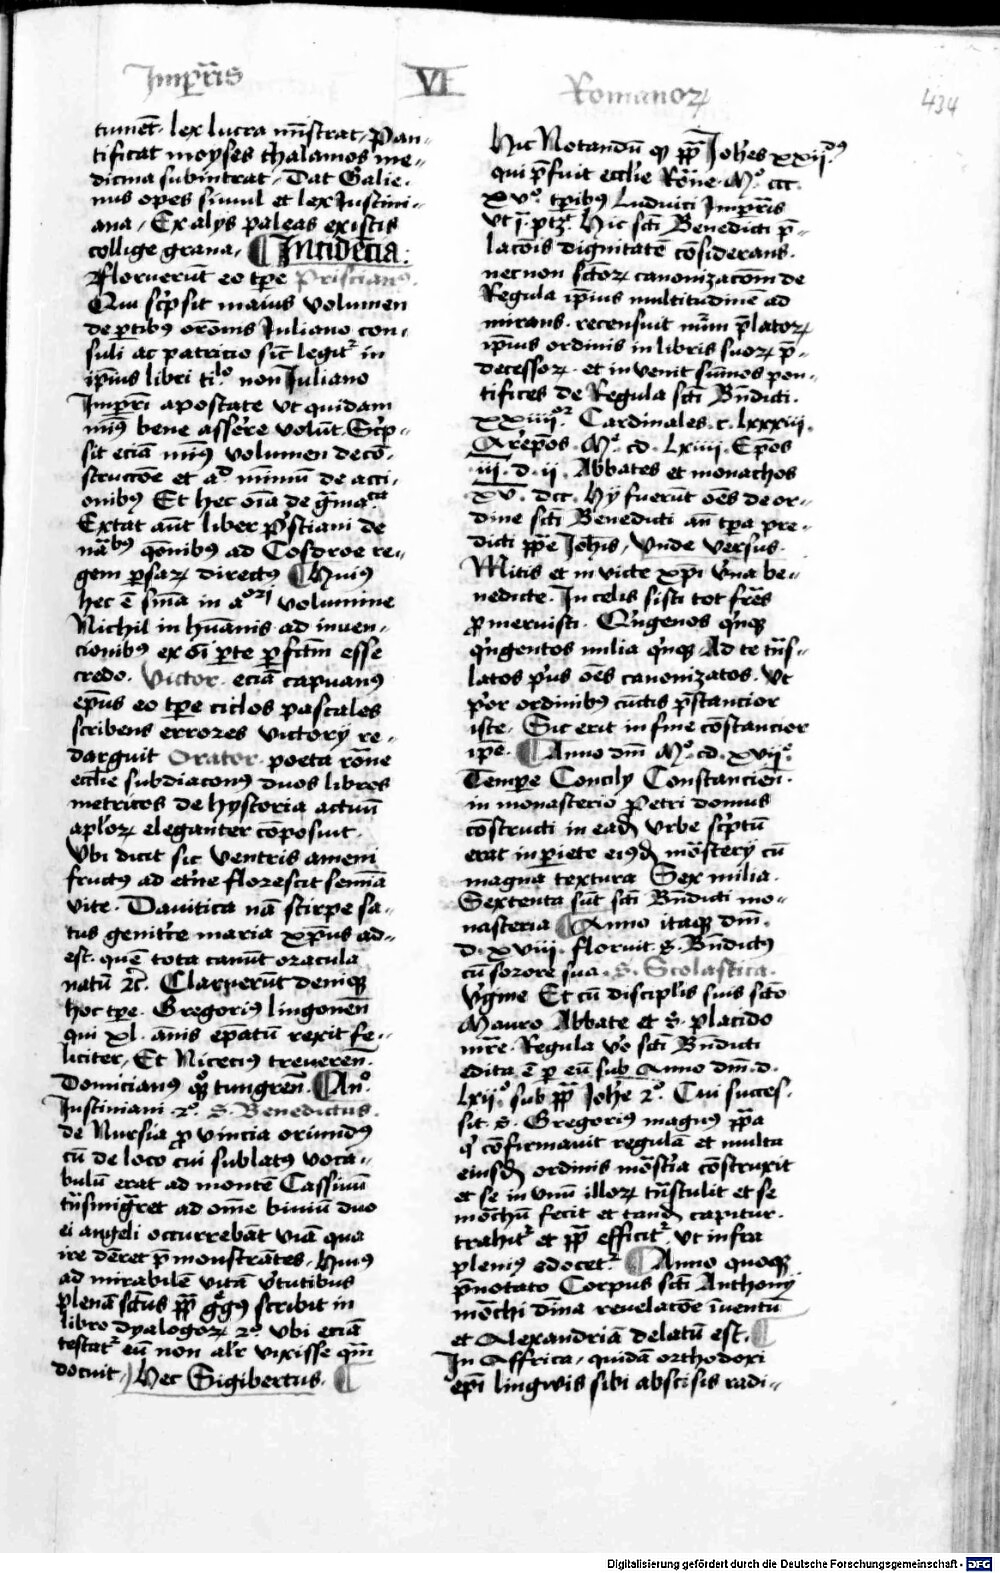 Imꝑr̄is VI Romanoꝝ 434
tument̄. lex lucra mīstrat, Pan-
tificat moyses thalamos me-
dicina subintrat, Dat Galie-
nus opes simul et lex Iustini-
ana, Ex alijs paleas ex istis
collige grana, ¶ Incidēcia:
Floruerūt eo tꝑe Priscianꝰ.
Qui sc̄psit maius volumen
de ꝑtibꝰ orōnis Iuliano con-
suli ac patricio sic̄ legitᷣ in
ip̄ius libri ti.lo non Iuliano
Imꝑr̄i apostate vt quidam
minꝰ bene assere volūt. Sc̄p-
sit eciā minꝰ volumen de cō-
structōe et ad minimū de acci-
onibꝰ Et hec oīa de grāmatica
Extat aūt liber pͥstiani de
nāibꝰ qōnibꝰ ad Cosdroe re-
gem ꝑsaꝝ directꝰ ¶ Huiꝰ
hec ē sn̄ia in aori volumine
Nichil in hūanis ad inuen-
cionibꝰ ex oī ꝑte ꝑfc̄tm esse
credo. Victor eciā capuanꝰ
ep̄us eo tꝑe ciclos pascales
scribens errores victorij re-
darguit Orator poeta rōne
eccl̄ie subdiaconꝰ duos libros
metricos de hystoria actuū
apl̄oꝝ eleganter cōposuit
Vbi dicit sic ventris ameni
fructꝰ ad etne florescit semīa
vite. Dauitica nā stirpe sa-
tus genitͥce maria xp̄us ad-
est. quē tota canūt oracula
natū ꝛc̄. Claruerūt deniqꝫ
hoc tꝑe. Gregoriꝰ lingonen̄
qui xl. annis ep̄atū rexit fe-
liciter, Et Niceciꝰ treueren̄
Domicianꝰ qͦꝫ tungren̄. ¶ Anͦ.
Iustiniani. 2ͦ. S. Benedictus.
de Nursia ꝓvincia oriundꝰ
cū de loco cui sublatꝰ voca-
bulū erat ad montē Cassinū
tͣnsmigret ad om̄e biuiū duo
ei angeli occurrebāt viā qua
ire dēret p̄monstrātes. Huiꝰ
ad mirabilē vitā vͥtutibus
plenā sc̄tus pp̄ gͤgꝰ scribit in
libro dyalogoꝝ 2ͦ. vbi eciā
testatᷣ eū non alr̄ vixisse qm̄
docuit, Hec Sigibertus. ¶
Hic Notandū qꝫ pp̄ Ioh̄es xxijdꝰ
qui p̄fuit eccl̄ie Rōne. Mͦ. ccc.
xvͦ. tp̄ibꝰ Luduici Imꝑr̄is
vt ī ptꝫ. Hic sc̄ti Benedicti p̄-
lacōis dignitatē cōsiderans.
necnon sc̄toꝝ canonizacōm de
Regula ip̄ius multitudine ad
mirans. recensuit nūm p̄latoꝝ
ip̄ius ordinis in libris suoꝝ p̄-
decessoꝝ. et in venit sūmos pon-
tifices de Regula sc̄ti Bn̄dicti.
xxiiijor Cardinales. c. lxxxiij.
Archiep̄os. Mͦ. cd. Lxiiij. Ep̄os
iij. d. ij. Abbates et monachos
xv. dcc. Hij fuerūt oēs de or-
dine sc̄ti Benedicti an̄ tꝑa pre-
dicti pp̄e Ioh̄is, Vnde versus.
Mitis et in victe xp̄i vͥna be-
nedicte. In celis sisti tot fr̄es
ꝓmeruisti. Qͥngenos qͥnqꝫ
qͥngentos milia qͥnqꝫ. Ad te tͣns-
latos pͥus oēs canonizatos. Vt
pͥor ordinibꝰ cūctis p̄stancior
iste, Sic erit in fine cōstancior
ipē. ¶ Anno dm̄ Mͦ. cd. xvijͦ.
Tempe Concilij Constancien̄.
in monasterio Petri domus
cōstructi in eadꝫ vrbe sc̄ptū
erat in ꝑiete eiꝰdꝫ mōsterij cū
magna textura Sex milia.
Sextenta sūt sc̄ti Bn̄dicti mo-
nasteria ¶ Anno itaqꝫ dm̄.
d. xviij. floruit. S. Bn̄dictꝰ
cū sorore sua. S. Scolastica.
vͥgine Et cū discipl̄is suis sc̄to
Mauro Abbate et S. placido
mr̄e. Regula vͦ sc̄ti Bn̄dicti
edita ē ꝑ eū sub Anno dm̄. d.
lxijͦ. sub pp̄ Ioh̄e 2ͦ. Cui succes-
sit. S. Gregoriꝰ magnꝰ pp̄a
qͥ cōfirmauit regulā et multa
eiusdꝫ ordinis mōstīa cōstruxit
et se in vnū illoꝝ tͣnstulit et se
mōchū fecit et tandꝫ capitur.
trahitᷣ et pp̄ efficitᷣ. vt infra
pleniꝰ edocetᷣ ¶ Anno quoqꝫ
p̄notato Corpus sc̄ti Anthonij
mōchi dīna reuelacōe īuentū
et Alexandriā delatū est. ¶
In Affrica, quidā orthodoxi
ep̄i lingwis sibi abscisis radi-
Digitalisierung gefördert durch die Deutsche Forschungsgemeinschaft - DFG